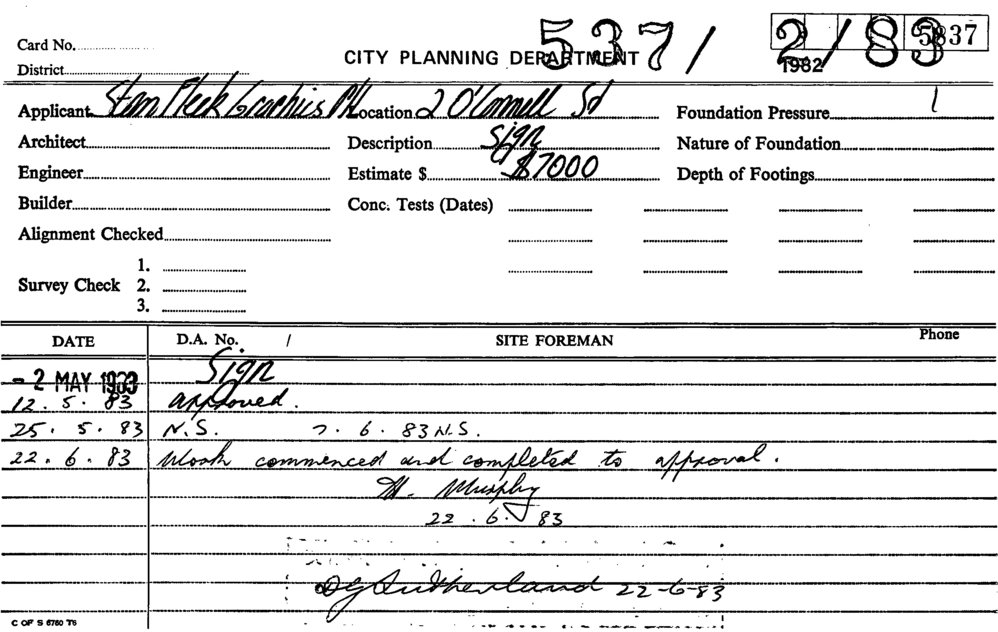 Card No. 537/2/83 5837
CITY PLANNING DEPARTMENT 1982
District
Applicant Stan Fleek Graphics P/L Location 2 O'Connell St Foundation Pressure
Architect Description Sign Nature of Foundation
Engineer Estimate $ $7000 Depth of Footings
Builder Conc. Tests (Dates)
Alignment Checked
1.
Survey Check 2.
3.
DATE D.A. No. / SITE FOREMAN Phone
- 2 MAY 1983 Sign
12. 5. 83 approved.
25. 5. 83 N.S. 7. 6. 83 N.S.
22. 6. 83 Work commenced and completed to approval.
Murphy
22. 6. 83
DG Sutherland 22-6-83
C OF S 6760 T6